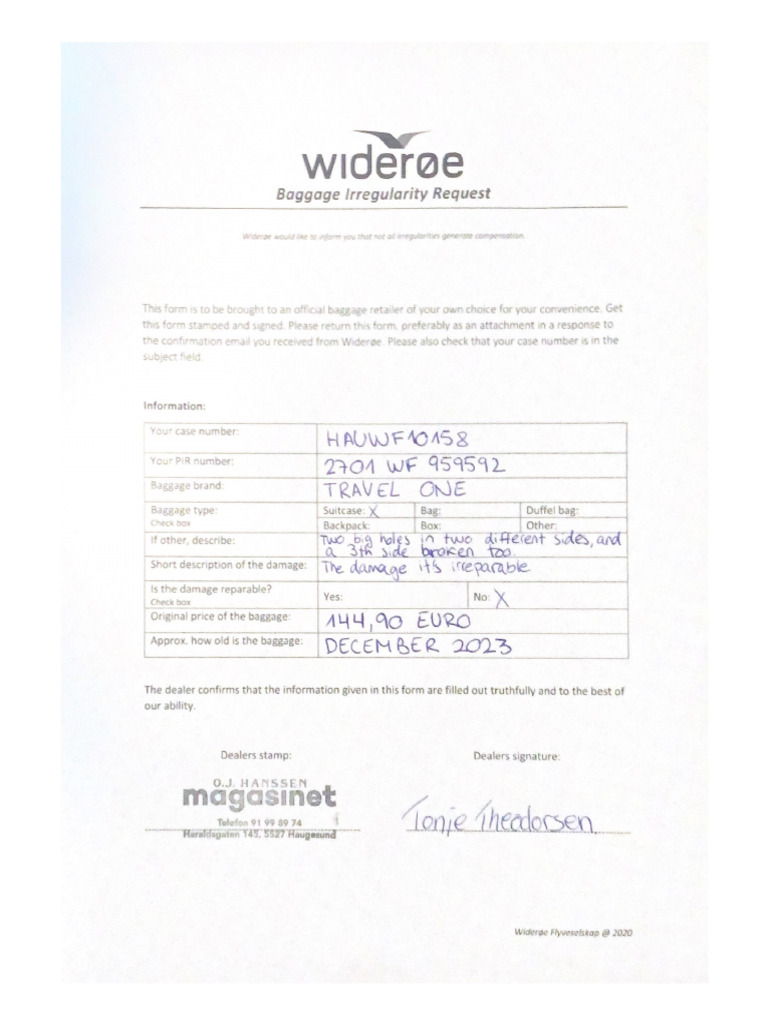 widerøe
Baggage Irregularity Request
Widerøe would like to inform you that not all irregularities generate compensation.
This form is to be brought to an official baggage retailer of your own choice for your convenience. Get
this form stamped and signed. Please return this form, preferably as an attachment in a response to
the confirmation email you received from Widerøe. Please also check that your case number is in the
subject field.
Information:
Your case number: HAUWF10158
Your PIR number: 2701 WF 959592
Baggage brand: TRAVEL ONE
Baggage type: Suitcase: X Bag: Duffel bag:
Check box Backpack: Box: Other:
If other, describe: Two big holes in two different sides, and
a 3th side broken too.
Short description of the damage: The damage it's irreparable
Is the damage reparable? Yes: No: X
Check box
Original price of the baggage: 144,90 EURO
Approx. how old is the baggage: DECEMBER 2023
The dealer confirms that the information given in this form are filled out truthfully and to the best of
our ability.
Dealers stamp: Dealers signature:
O.J. HANSSEN
magasinet
Telefon 91 99 89 74
Haraldsgaten 145, 5527 Haugesund
Tonje Theodorsen
Widerøe Flyveselskap @ 2020